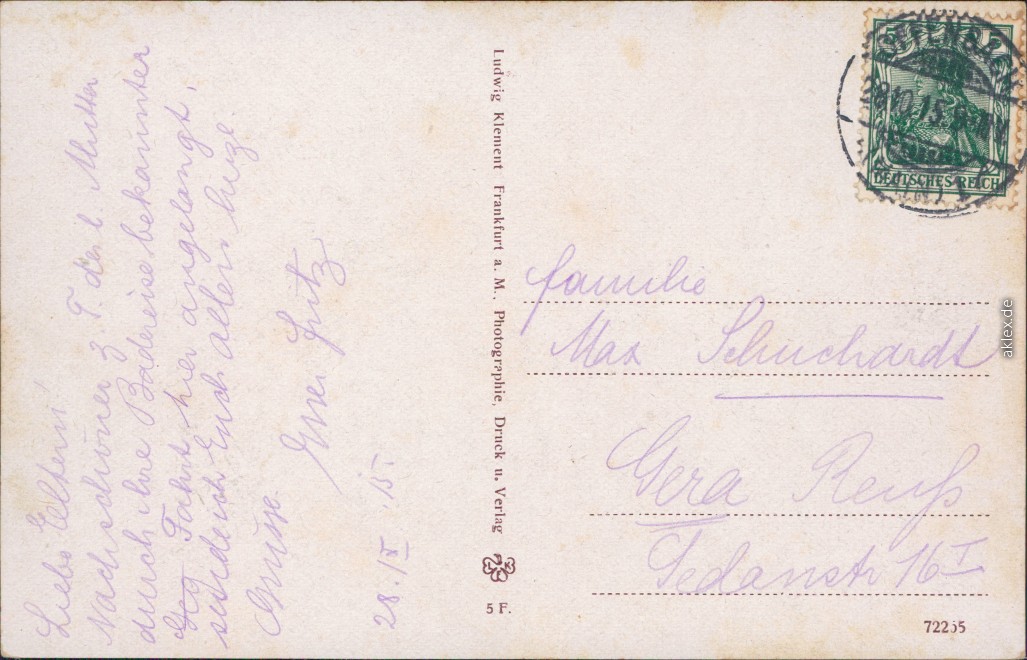 Liebe Eltern!
Nach schöner z. T. der l. Mutter
durch ihre Badereise bekannter
Fahrt hier angelangt,
sende ich Euch allen herz.
Grüsse.
Euer Fritz
28. IX. 15.
Ludwig Klement Frankfurt a. M., Photographie, Druck u. Verlag
5 F.
5 5
OFFENBACH
15. 8-9 V
DEUTSCHES REICH
Familie
Max Schuchardt
Gera Reuß
Sedanstr 16 I
72255
aklex.de